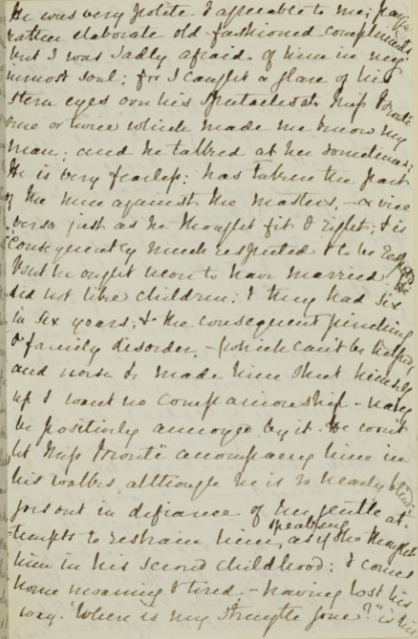 He was very polite & agreeable to me; paying
rather elaborate old-fashioned compliments
but I was sadly afraid of him in my
inmost soul; for I caught a glare of his
stern eyes over his spectacles at Miss Brontë
once or twice which made me know my
man; and he talked at her sometimes;
He is very fearless; has taken the part
of the men against the masters, – or vice
versa just as he thought fit & right; & is
consequently much respected & to be respected.
But he ought never to have married. He
did not like children; & they had six
in six years; & the consequent pinching
& family disorder, – (which can't be helped)
and noise &c made him shut himself
up & want no companionship – nay
be positively annoyed by it. He won't
let Miss Brontë accompany him in
his walks although he is so nearly blind;
goes out in defiance of her gentle at-
tempts to restrain him, speaking as if she thought
him in his second childhood; & comes
home moaning & tired – having lost his
way. "Where is my strength gone?" is his